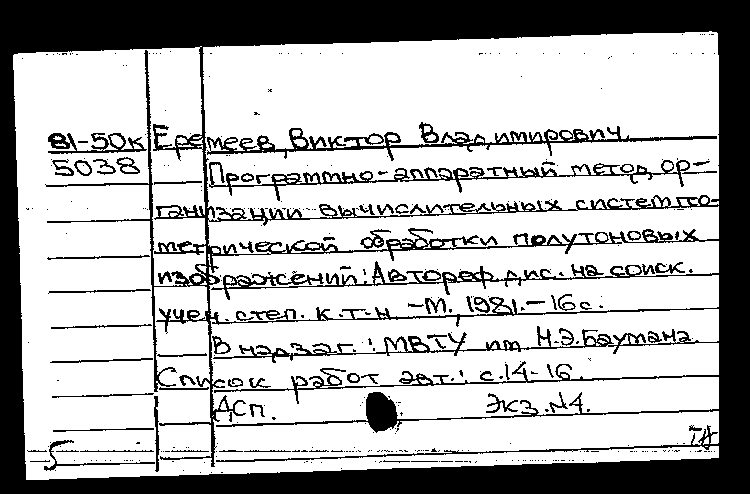 81-50к Еремеев, Виктор Владимирович.
5038 Программно-аппаратный метод ор-
ганизации вычислительных систем гео-
метрической обработки полутоновых
изображений: Автореф. дис. на соиск.
учен. степ. к.т.н. -М., 1981.-16с.
В надзаг.: МВТУ им. Н.Э.Баумана.
Список работ авт.: с.14-16.
ДСП. Экз.N4.
5